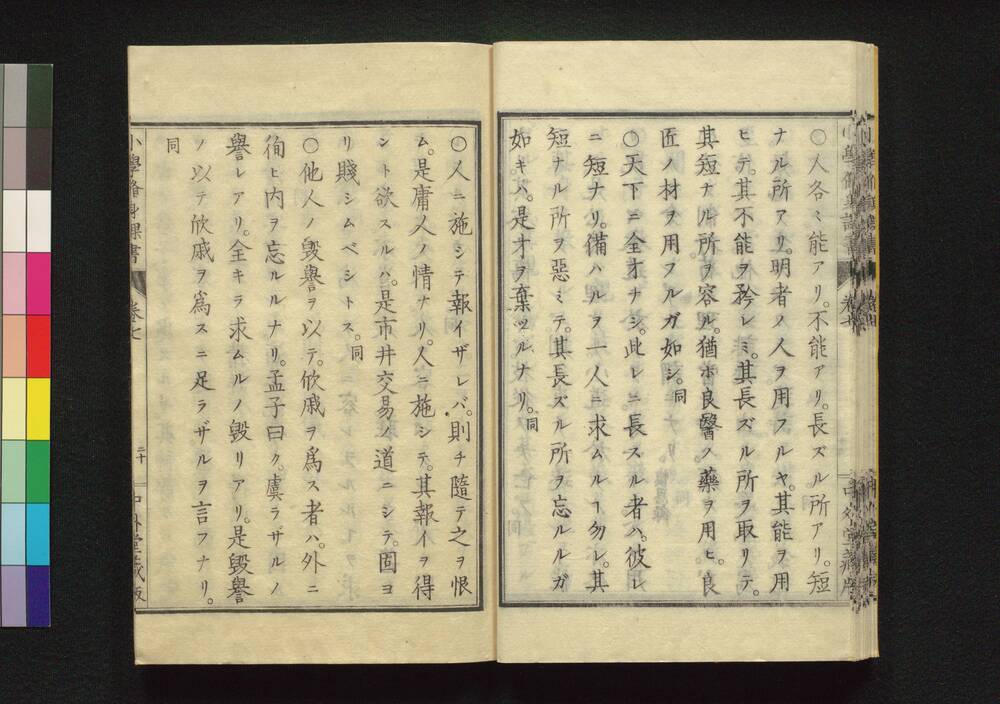 〇人各〻能アリ。不能アリ。長ズル所アリ。短
ナル所アリ。明者ノ人ヲ用フルヤ。其能ヲ用
ヒテ。其不能ヲ矜レミ。其長ズル所ヲ取リテ。
其短ナル所ヲ容ル。猶ホ良醫ノ藥ヲ用ヒ。良
匠ノ材ヲ用フルガ如シ。同
〇天下ニ全才ナシ。此レニ長スル者ハ。彼レ
ニ短ナリ。備ハルヲ一人ニ求ムルヿ勿レ。其
短ナル所ヲ惡ミテ。其長ズル所ヲ忘ルルガ
如キハ。是才ヲ棄ツルナリ。同
〇人ニ施シテ報イザレバ。則チ隨テ之ヲ恨
ム。是庸人ノ情ナリ。人ニ施シテ。其報イヲ得
ント欲スルハ。是市井交易ノ道ニシテ。固ヨ
リ賤シムベシトス。同
〇他人ノ毀譽ヲ以テ。欣戚ヲ爲ス者ハ。外ニ
徇ヒ内ヲ忘ルルナリ。孟子曰ク。虞ラザルノ
譽レアリ。全キヲ求ムルノ毀リアリ。是毀譽
ノ以テ欣戚ヲ爲スニ足ラザルヲ言フナリ。
同
小學脩身課書 卷七 二十 中外堂藏版